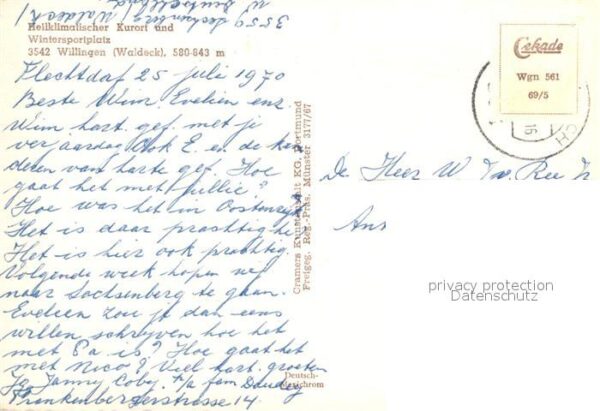 3559 Sachsenberg / Waldeck /
W. Duitschland
Heilklimatischer Kurort und
Wintersportplatz
3542 Willingen (Waldeck), 580-843 m
Flechtdaf 25 juli 1970
Beste Wim Evelien enz.
Wim hart. gef. met je
verjaardag Ook E. en de kin
deren van harte gef. Hoe
gaat het met jullie?
Hoe was het in Oostenrijk
Het is daar prachtig hè
Het is hier ook prachtig.
Volgende week hopen we
naar Sachsenberg te gaan.
Evelien zou je dan eens
willen schrijven hoe het
met Pa is? Hoe gaat het
met Nico? Veel hart. groeten
Jannij Coby. p/a fam
Frankenbergerstrasse 14.
Cramers Kunstanstalt KG, Dortmund
Freigeg. Reg.-Präs. Münster 3177/67
Cekade
Wgn 561
69/5
16
De Heer W v. Ree
Ans
privacy protection
Datenschutz